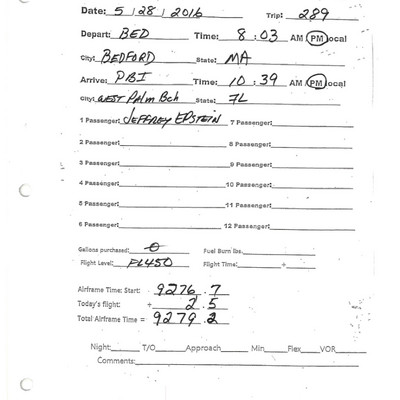 Date: 5 / 28 / 2016 Trip: 289
Depart: BED Time: 8 : 03 AM PM Local
City: BEDFORD State: MA
Arrive: PBI Time: 10 : 39 AM PM Local
City: WEST Palm Bch State: FL
1 Passenger: JEFFREY EPSTEIN 7 Passenger:
2 Passenger: 8 Passenger:
3 Passenger: 9 Passenger:
4 Passenger: 10 Passenger:
5 Passenger: 11 Passenger:
6 Passenger: 12 Passenger:
Gallons purchased: 0 Fuel Burn lbs.
Flight Level: FL450 Flight Time: +
Airframe Time: Start: 9276 .7
Today's flight: + 2 . 5
Total Airframe Time = 9279 .2
Night: T/O Approach Min Flex VOR
Comments: